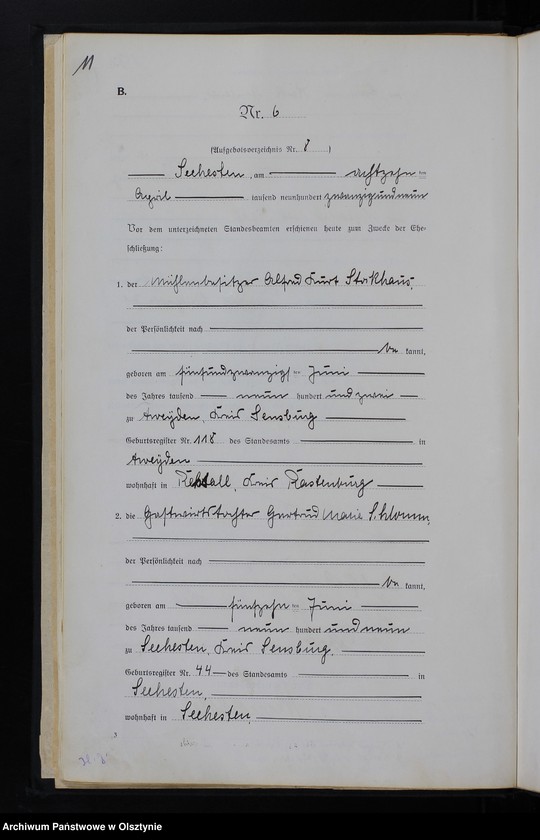 11
B.
Nr. 6
(Aufgebotsverzeichnis Nr. 8)
Seehesten, am achtzehnten
April tausend neunhundert zwanzigundneun
Vor dem unterzeichneten Standesbeamten erschienen heute zum Zwecke der Ehe-
schließung:
1. der Mühlenbesitzer Alfred Kurt Stockhaus,
der Persönlichkeit nach
be kannt,
geboren am fünfundzwanzigsten Juni
des Jahres tausend neun hundert und zwei
zu Aweyden, Kreis Sensburg
Geburtsregister Nr. 118 des Standesamts in
Aweyden
wohnhaft in Kreis Rastenburg
2. die Gastwirtstochter Gertrud Marie
der Persönlichkeit nach
be kannt,
geboren am fünfzehnten Juni
des Jahres tausend neun hundert und neun
zu Seehesten, Kreis Sensburg,
Geburtsregister Nr. 44 des Standesamts in
Seehesten,
wohnhaft in Seehesten,
Archiwum Państwowe w Olsztynie